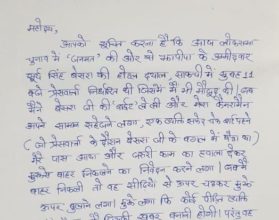 महोदय,
आपको सूचित करना है कि आज लोकसभा
चुनाव में 'जनमत' की ओर से झापीपा के उम्मीदवार
सूर्य सिंह बेसरा की होटल दयाल, साकची में सुबह 11
बजे प्रेसवार्ता निर्धारित थी जिसमें मैं भी मौजूद थी। जब
मैंने बेसरा जी की बाईट ले ली और मेरा कैमरामैन
अपने सामान सहेजने लगा, एक व्यक्ति
(जो प्रेसवार्ता के दौरान बेसरा जी के बगल में बैठा था)
मेरे पास आया और जरूरी काम का हवाला देकर
मुझसे बाहर निकलने का निवेदन करने लगा। जब मैं
बाहर निकली तो वह सीढ़ियों से ऊपर चढ़कर मुझे
ऊपर बुलाने लगा। मुझे लगा कि कोई पीड़ित व्यक्ति
खबर बतानी होगी। परंतु वह